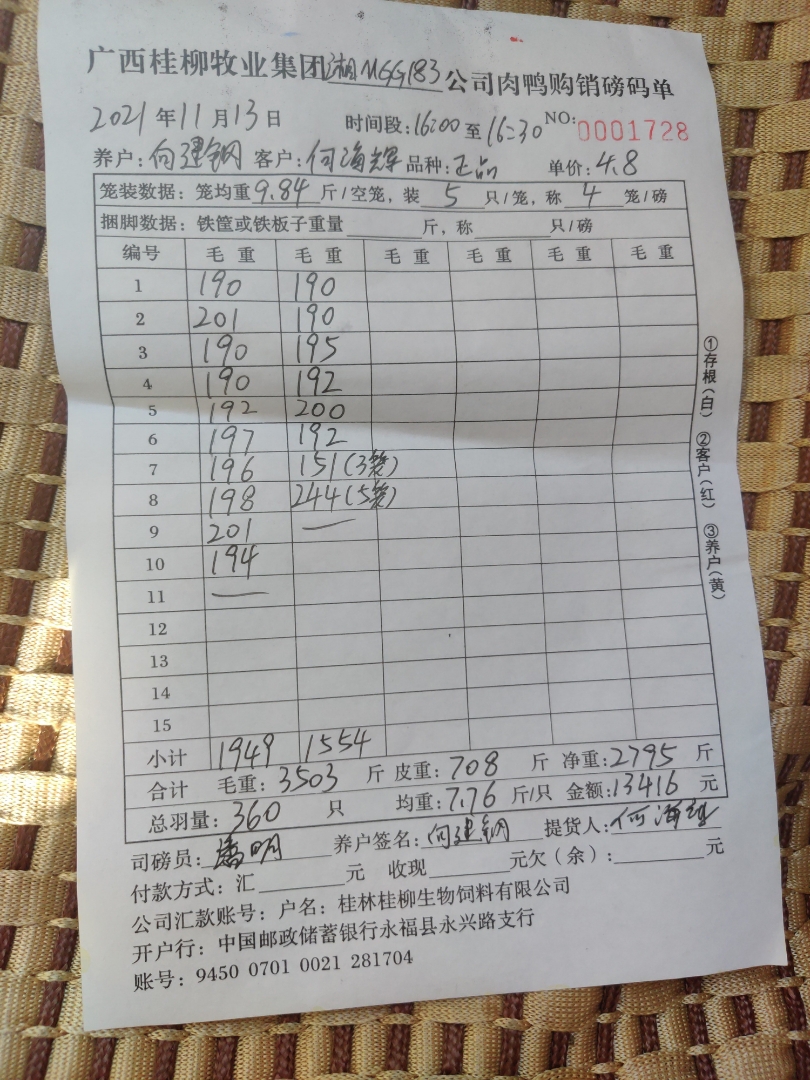 广西桂柳牧业集团湘MGG183公司肉鸭购销磅码单
2021年11月13日 时间段:16:00至16:30 NO:0001728
养户:向建钢 客户:何海辉 品种:正品 单价:4.8
笼装数据:笼均重9.84斤/空笼,装5只/笼,称4笼/磅
捆脚数据:铁筐或铁板子重量 斤,称 只/磅
编号 毛重 毛重 毛重 毛重 毛重 毛重
1 190 190
2 201 190
3 190 195
4 190 192
5 192 200
6 197 192
7 196 151(3笼)
8 198 244(5笼)
9 201 —
10 194
11 —
12
13
14
15
小计 1949 1554
合计 毛重:3503斤 皮重:708斤 净重:2795斤
总羽量:360只 均重:7.76斤/只 金额:13416元
司磅员: 明 养户签名:向建钢 提货人:何海辉
付款方式:汇 元 收现 元欠(余): 元
公司汇款账号:户名:桂林桂柳生物饲料有限公司
开户行:中国邮政储蓄银行永福县永兴路支行
账号:9450 0701 0021 281704
①存根(白) ②客户(红) ③养户(黄)